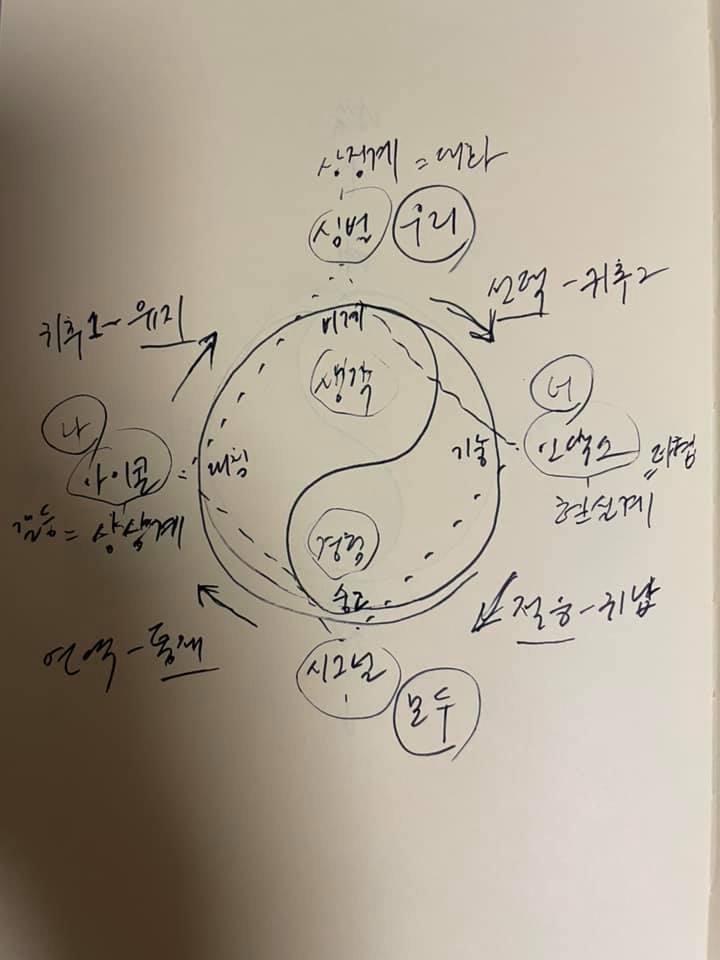 상징계 = 대화
심벌 우리
귀추1 - 유지
선택 - 귀추2
위계
생각
나
너
아이콘
대칭
기능
인덱스
갈등 = 상상계
현실계
경험
순환
적응 - 귀납
연역 - 통제
시그널
모두